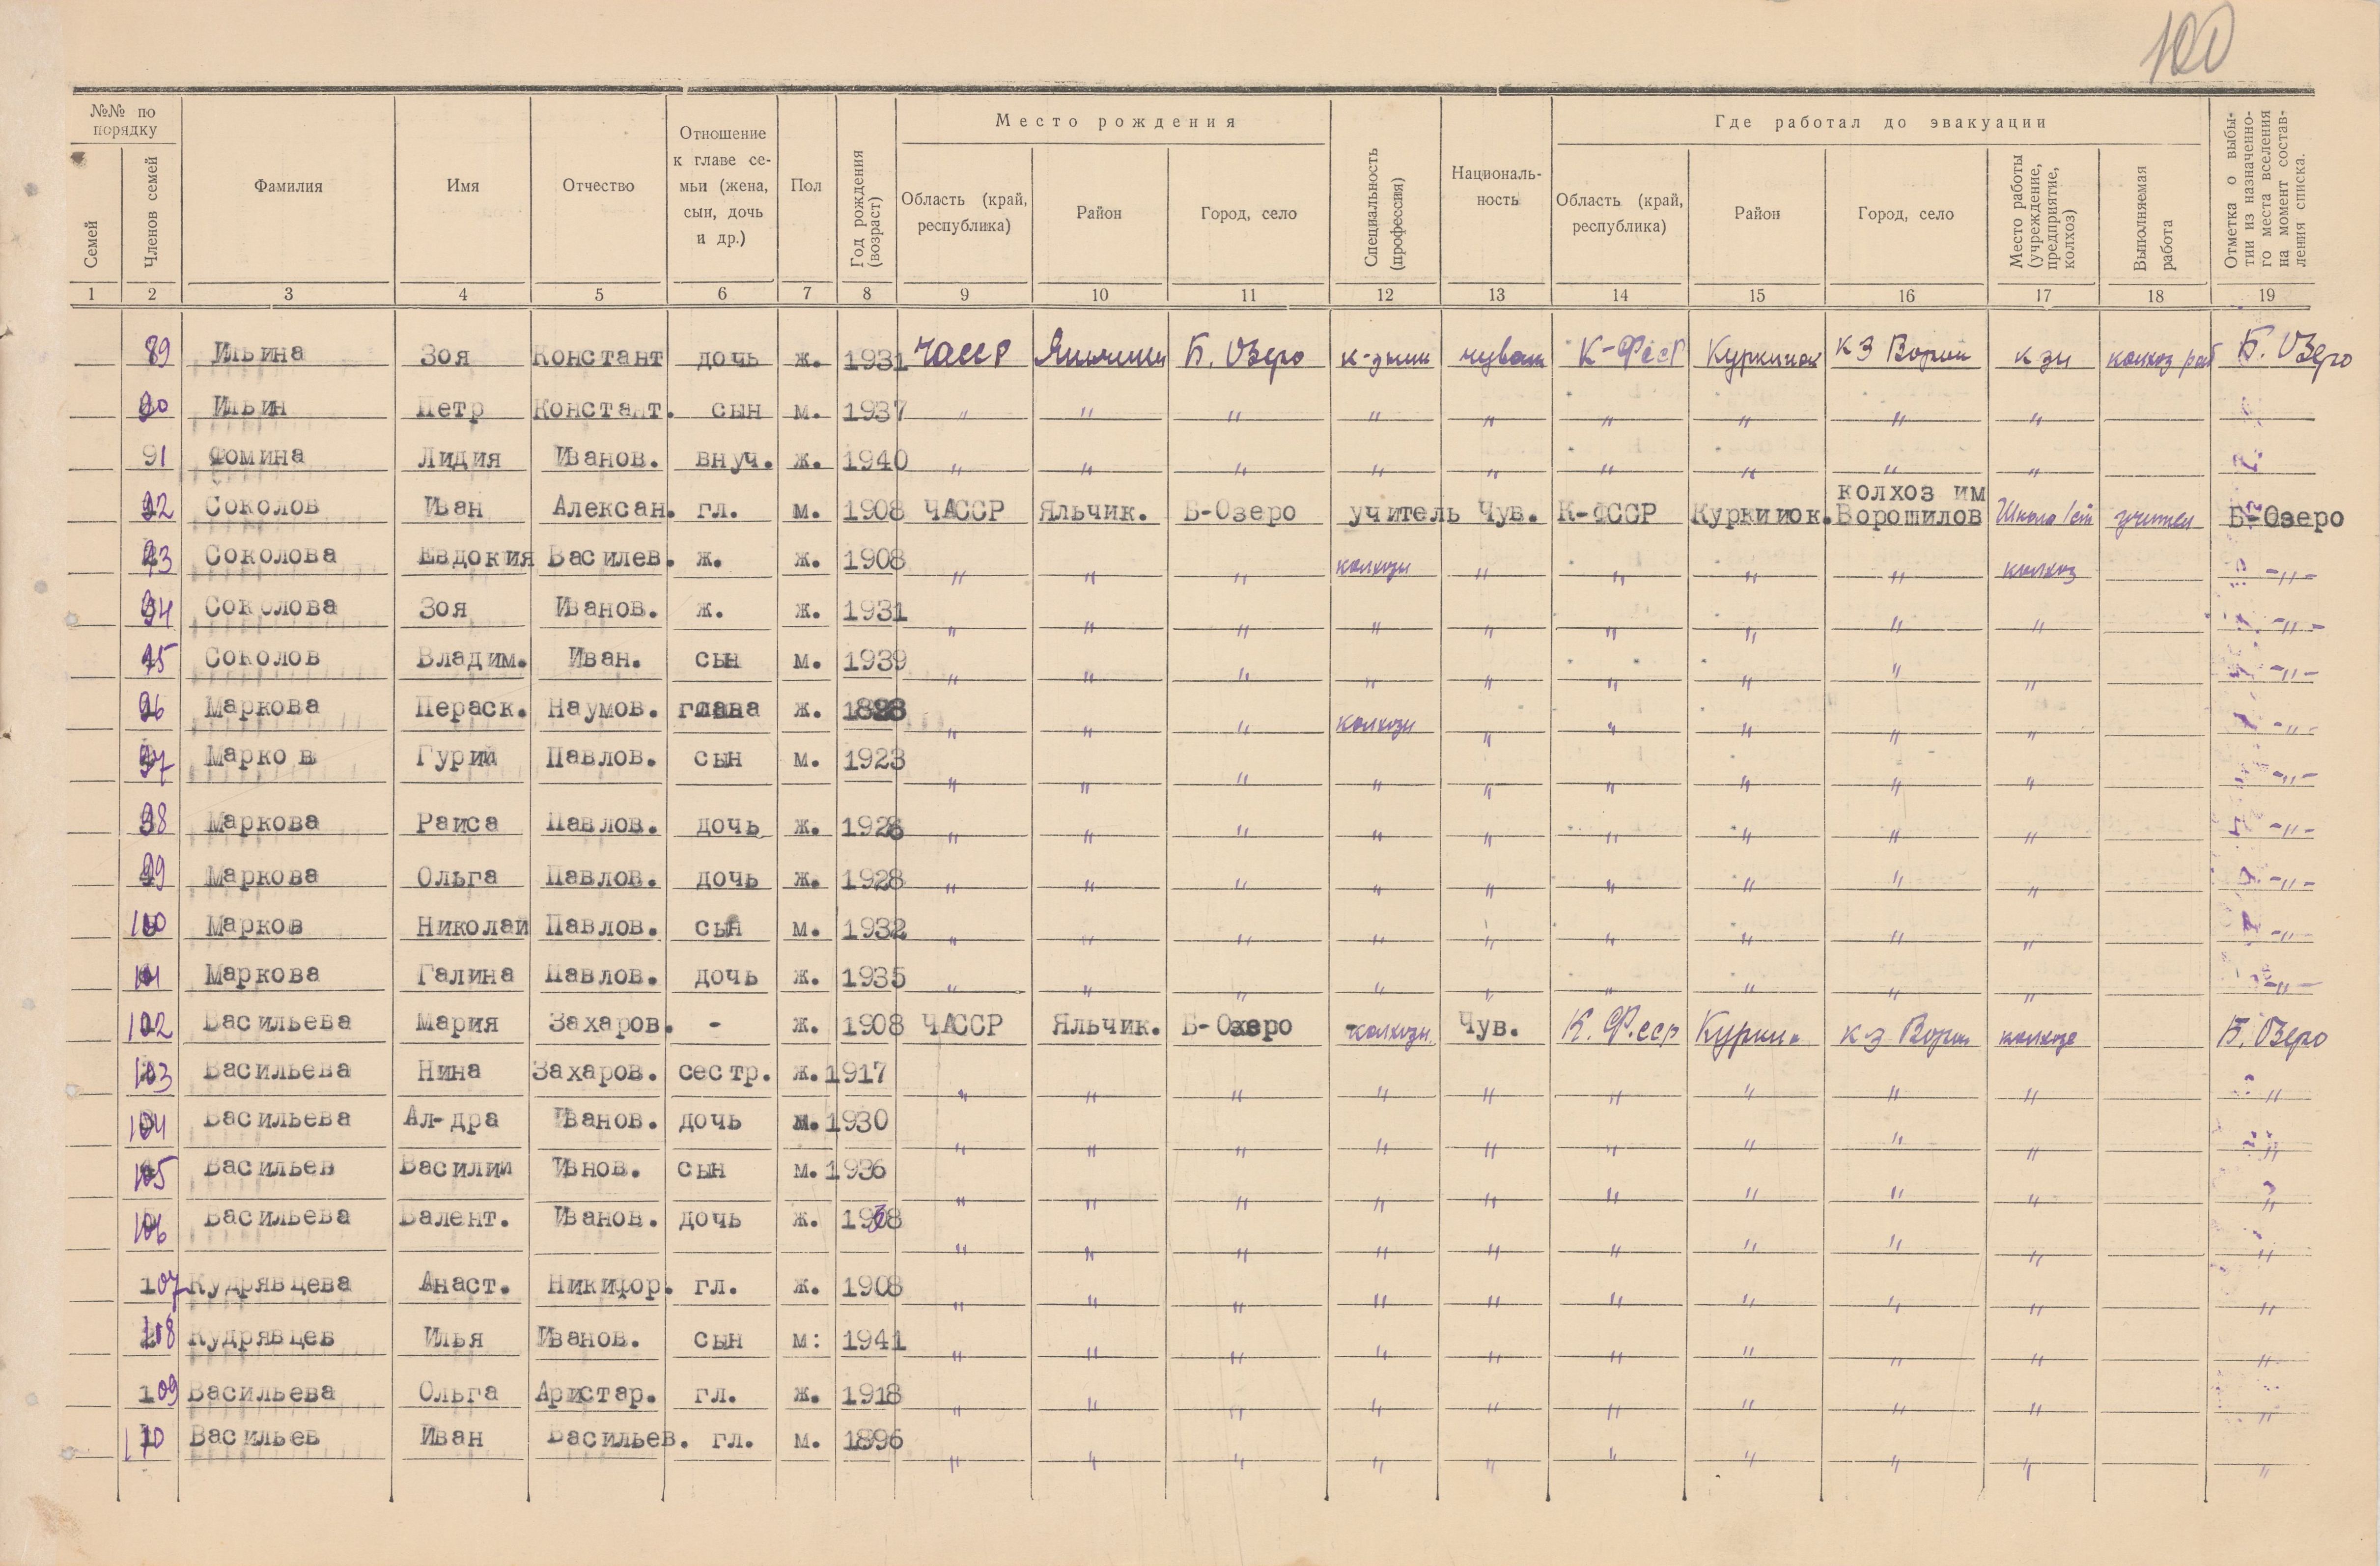 100
№№ по порядку
Семей
Членов семей
Фамилия
Имя
Отчество
Отношение к главе се-
мьи (жена, сын, дочь и др.)
Пол
Год рождения (возраст)
Место рождения
Область (край, республика)
Район
Город, село
Специальность (профессия)
Националь-
ность
Где работал до эвакуации
Область (край, республика)
Район
Город, село
Место работы (учреждение, предприятие, колхоз)
Выполняемая работа
Отметка о выбы-
тии из назначенно-
го места вселения
на момент состав-
ления списка.
1 2 3 4 5 6 7 8 9 10 11 12 13 14 15 16 17 18 19
89 Ильина Зоя Констант дочь ж. 1931 ЧАССР Б. Озеро чуваш К-ФССР к з Ворош Б. Озеро
90 Ильин Петр Констант. сын м. 1937 " " " " " " " " "
91 Фомина Лидия Иванов. внуч. ж. 1940 " " " " " " " " "
92 Соколов Иван Алексан. гл. м. 1908 ЧАССР Яльчик. Б-Озеро учитель Чув. К-ФССР Куркиюк. колхоз им Ворошилов Школа учител Б-Озеро
93 Соколова Евдокия Василев. ж. ж. 1908 " " " колхозн " " " " колхоз -"-
94 Соколова Зоя Иванов. ж. ж. 1931 " " " " " " " " " -"-
95 Соколов Владим. Иван. сын м. 1939 " " " " " " " " " -"-
96 Маркова Пераск. Наумов. глава ж. " " " колхозн " " " " " -"-
97 Марков Гурий Павлов. сын м. 1923 " " " " " " " " " -"-
98 Маркова Раиса Павлов. дочь ж. " " " " " " " " " -"-
99 Маркова Ольга Павлов. дочь ж. 1928 " " " " " " " " " -"-
100 Марков Николай Павлов. сын м. 1932 " " " " " " " " " -"-
101 Маркова Галина Павлов. дочь ж. 1935 " " " " " " " " " -"-
102 Васильева Мария Захаров. - ж. 1908 ЧАССР Яльчик. Б-Озеро колхозн. Чув. К. Ф.ССР Курки к-з Ворош колхоз Б. Озеро
103 Васильева Нина Захаров. сестр. ж. 1917 " " " " " " " " " "
104 Васильева Ал-дра Иванов. дочь 1930 " " " " " " " " " "
105 Васильев Василий Ивнов. сын м. 1936 " " " " " " " " " "
106 Васильева Валент. Иванов. дочь ж. 1938 " " " " " " " " " "
107 Кудрявцева Анаст. Никифор. гл. ж. 1908 " " " " " " " " " "
108 Кудрявцев Илья Иванов. сын м: 1941 " " " " " " " " " "
109 Васильева Ольга Аристар. гл. ж. 1918 " " " " " " " " " "
110 Васильев Иван Васильев. гл. м. 1896 " " " " " " " " " "